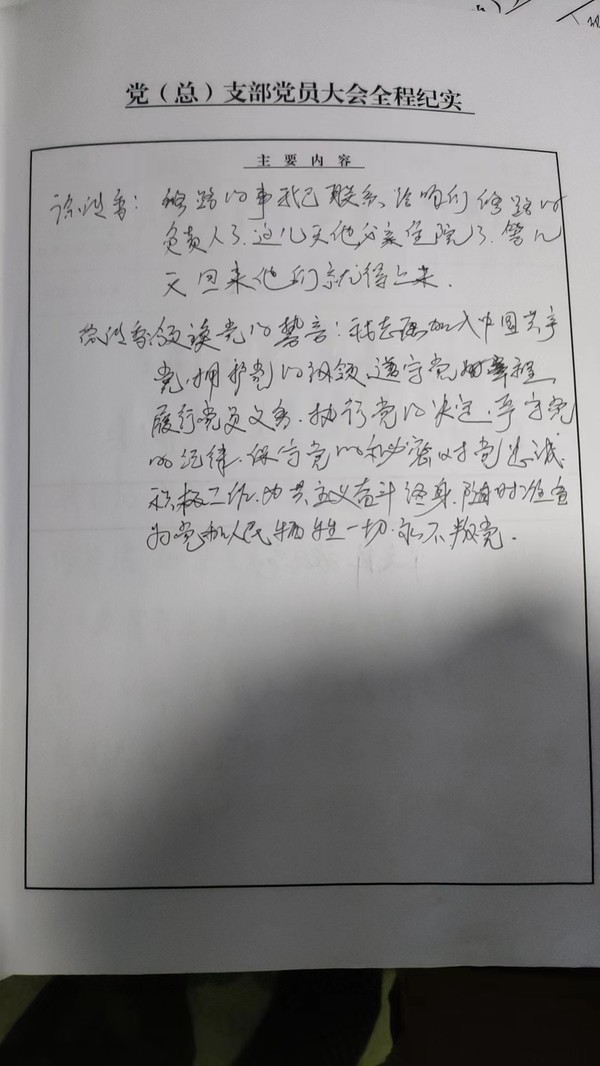 党（总）支部党员大会全程纪实
主要内容
修路的事我已联系给咱们修路的
负责人了.这几天他父亲住院了.等几
天回来他们就得上来.
领读党的誓言:我志愿加入中国共产
党,拥护党的纲领.遵守党的章程.
履行党员义务.执行党的决定.严守党
的纪律.保守党的秘密.对党忠诚.
积极工作.为共产主义奋斗终身.随时准备
为党和人民牺牲一切.永不叛党.